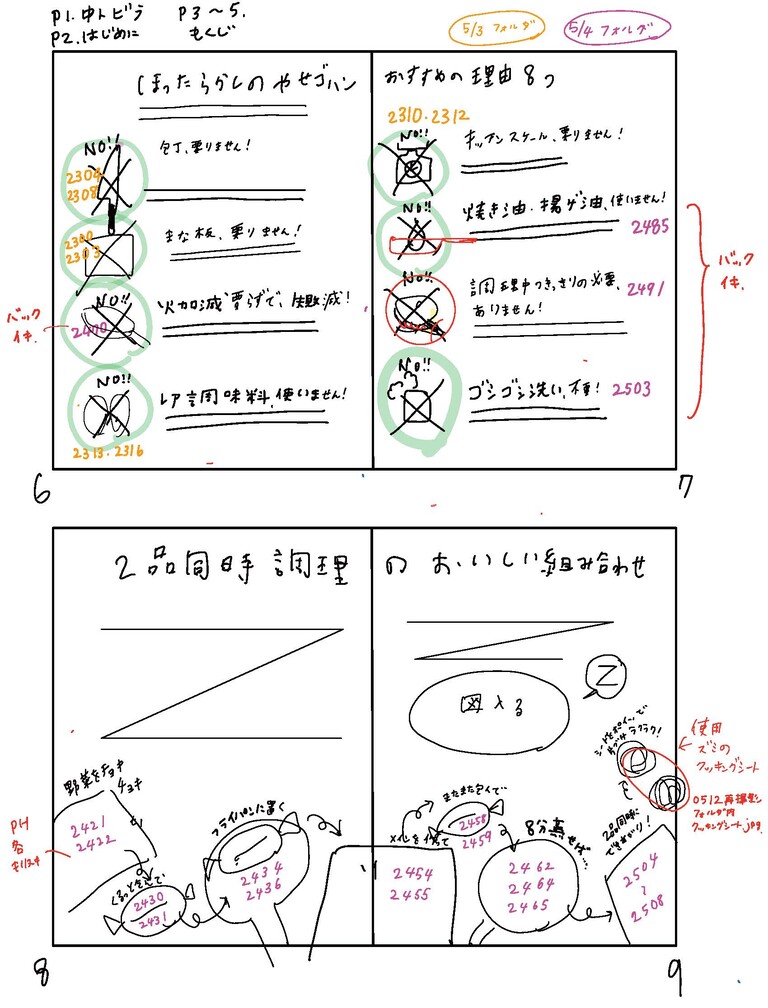 P1.中トビラ P3〜5.
P2.はじめに もくじ
5/3 フォルダ
5/4 フォルダ
ほったらかしの やせゴハン
おすすめの 理由 8つ
NO!!
2304
2308
包丁、要りません!
NO!!
2300
2303
まな板、要りません!
バック
イキ.
NO!!
2470
火加減要らずで、失敗減!
NO!!
レア調味料、使いません!
2313.2316
2310.2312
NO!!
キッチンスケール、要りません!
NO!!
焼き油・揚げ油、使いません!
2485
NO!!
調理中つきっきりの必要、
ありません!
2491
NO!!
ゴシゴシ洗い、不要!
2503
バック
イキ.
6
7
2品同時調理 の おいしい組み合わせ
図入る
野菜をチョキ
チョキ
2421
2422
PH
各
キリヌキ
くるっと包んで
2430
2431
フライパンに置く
2434
2436
メインを作って
2454
2455
またまた包んで
2458
2459
8分蒸せば…
2462
2464
2465
2品同時に
できあがり!
2504
〜
2508
シートをポイッで
片づけラクラク!
使用
ズミの
クッキングシート
0512再撮影
フォルダ内
クッキングシート.jpg
8
9